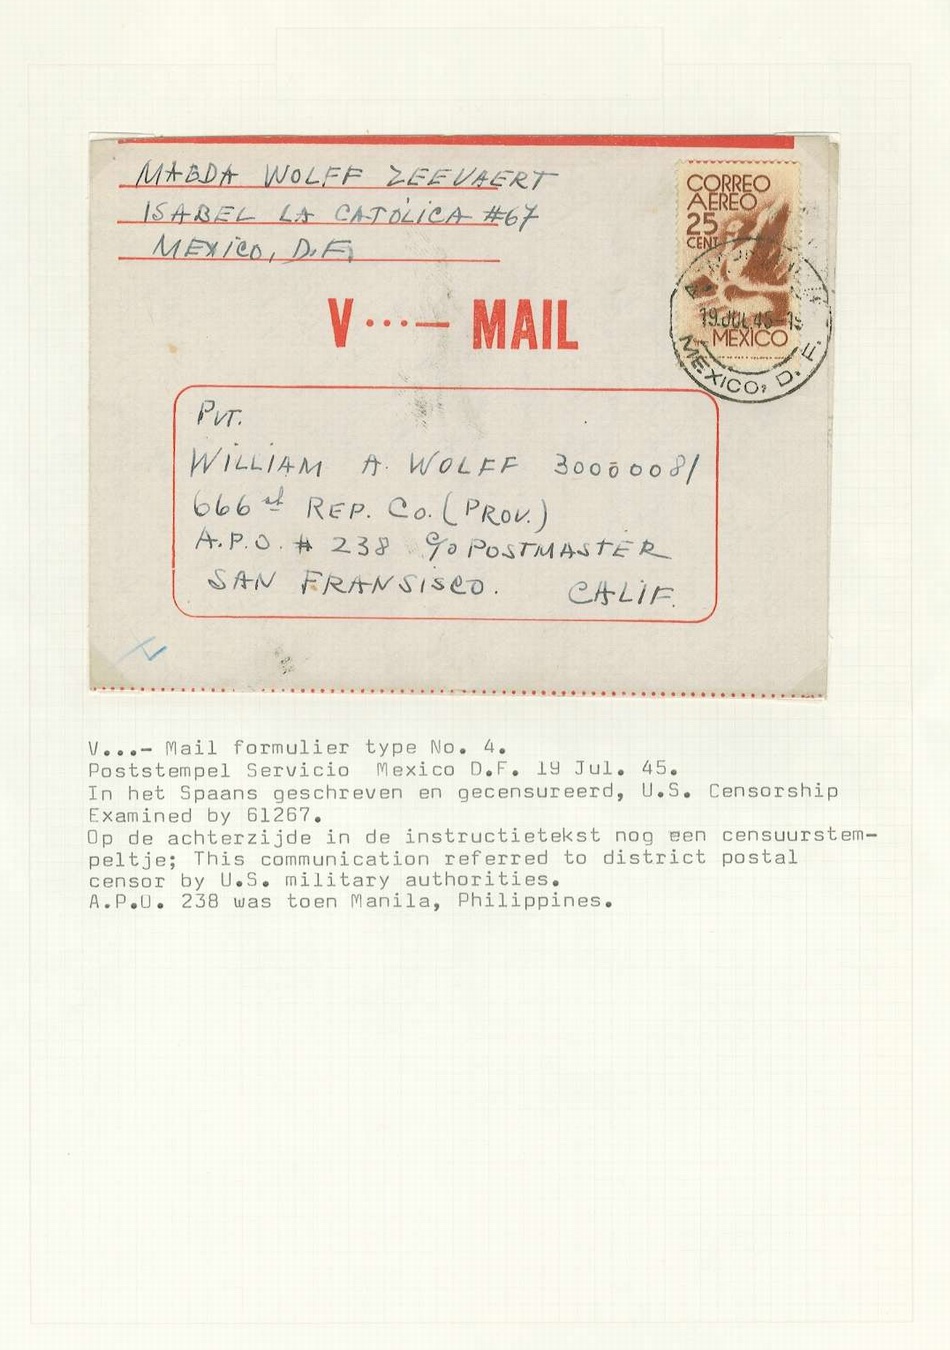 MAGDA WOLFF ZEEVAERT
ISABEL LA CATÓLICA #67
MEXICO, D.F.
CORREO
AEREO
25
CENT
19.JUL.45-19
MEXICO
MEXICO, D. F.
V ...— MAIL
Pvt.
WILLIAM A. WOLFF 30000081
666 st REP. CO. (PROV.)
A.P.O. # 238 c/o POSTMASTER
SAN FRANSISCO. CALIF.
V...- Mail formulier type No. 4.
Poststempel Servicio Mexico D.F. 19 Jul. 45.
In het Spaans geschreven en gecensureerd, U.S. Censorship
Examined by 61267.
Op de achterzijde in de instructietekst nog een censuurstem-
peltje; This communication referred to district postal
censor by U.S. military authorities.
A.P.O. 238 was toen Manila, Philippines.